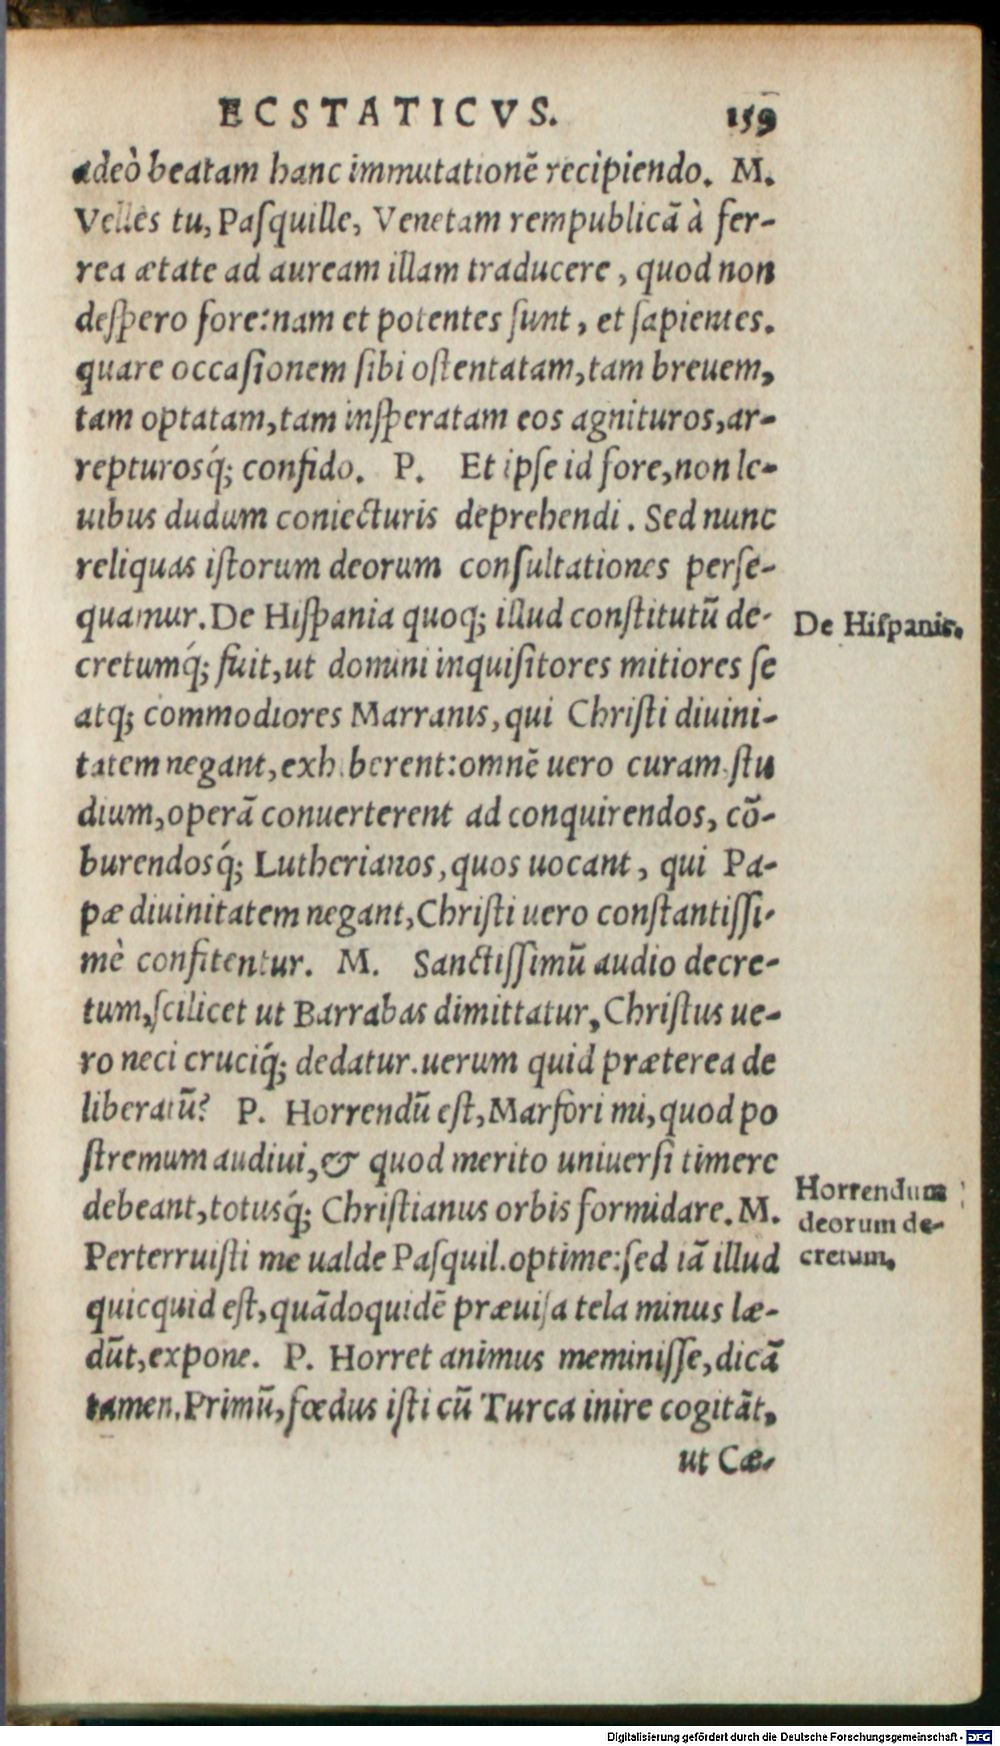 ECSTATICVS. 159
adeò beatam hanc immutationẽ recipiendo. M.
Velles tu, Paſquille, Venetam rempublicã à fer-
rea ætate ad auream illam traducere, quod non
deſpero fore: nam et potentes ſunt, et ſapientes.
quare occaſionem ſibi oſtentatam, tam breuem,
tam optatam, tam inſperatam eos agnituros, ar-
repturosq́; confido. P. Et ipſe id fore, non le-
uibus dudum coniecturis deprehendi. Sed nunc
reliquas iſtorum deorum conſultationes perſe-
quamur. De Hiſpania quoq; illud conſtitutũ de-
De Hiſpanis.
cretumq́; fuit, ut domini inquiſitores mitiores ſe
atq; commodiores Marranis, qui Chriſti diuini-
tatem negant, exhiberent: omnẽ uero curam ſtu
dium, operã conuerterent ad conquirendos, cõ-
burendosq́; Lutherianos, quos uocant, qui Pa-
pæ diuinitatem negant, Chriſti uero conſtantiſſi-
mè confitentur. M. Sanctiſſimũ audio decre-
tum, ſcilicet ut Barrabas dimittatur, Chriſtus ue-
ro neci cruciq́; dedatur. uerum quid præterea de
liberatũ? P. Horrendũ eſt, Marfori mi, quod po
ſtremum audiui, & quod merito uniuerſi timere
debeant, totusq́; Chriſtianus orbis formidare. M.
Horrendum
deorum de-
cretum.
Perterruiſti me ualde Paſquil. optime: ſed iã illud
quicquid eſt, quãdoquidẽ præuiſa tela minus læ-
dũt, expone. P. Horret animus meminiſſe, dicã
tamen. Primũ, fœdus iſti cũ Turca inire cogitãt,
ut Cæ-
Digitalisierung gefördert durch die Deutsche Forschungsgemeinschaft - DFG